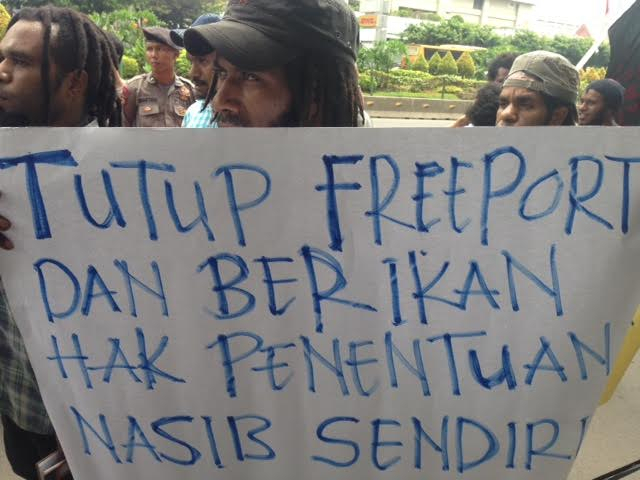 TUTUP FREEPORT
DAN BERIKAN
HAK PENENTUAN
NASIB SENDIRI